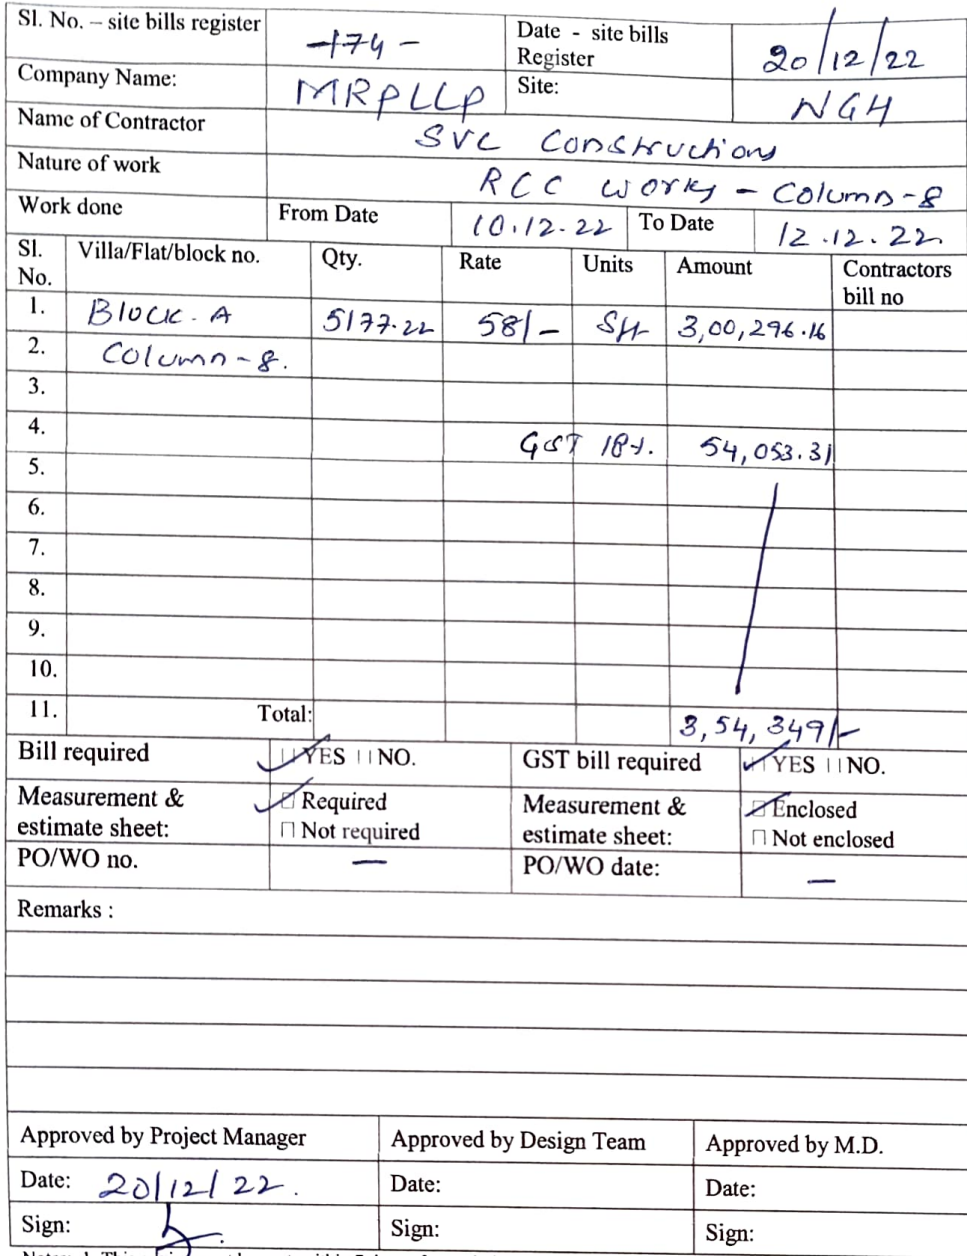 Sl. No. – site bills register -174- Date - site bills Register 20/12/22
Company Name: MRPLLP Site: NGH
Name of Contractor SVC Constructions
Nature of work RCC Works - Column-8
Work done From Date 10.12.22 To Date 12.12.22
Sl. No. Villa/Flat/block no. Qty. Rate Units Amount Contractors bill no
1. Block-A 5177.22 58/- Sft 3,00,296.16
2. Column-8.
3.
4. GST 18%. 54,053.31
5.
6.
7.
8.
9.
10.
11. Total: 3,54,349/-
Bill required YES NO. GST bill required YES NO.
Measurement & estimate sheet: Required Not required Measurement & estimate sheet: Enclosed Not enclosed
PO/WO no. — PO/WO date: —
Remarks :
Approved by Project Manager Approved by Design Team Approved by M.D.
Date: 20/12/22. Date: Date:
Sign: Sign: Sign: